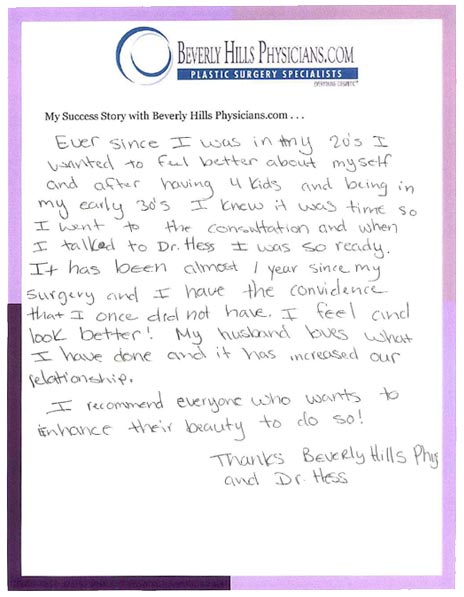 BEVERLY HILLS PHYSICIANS.COM
PLASTIC SURGERY SPECIALISTS
My Success Story with Beverly Hills Physicians.com . . .
Ever since I was in my 20's I
wanted to feel better about myself
and after having 4 kids and being in
my early 30's I knew it was time so
I went to the consultation and when
I talked to Dr. Hess I was so ready.
It has been almost 1 year since my
surgery and I have the convidence
that I once did not have. I feel and
look better! My husband loves what
I have done and it has increased our
relationship.
I recommend everyone who wants to
enhance their beauty to do so!
Thanks Beverly Hills Phys
and Dr. Hess